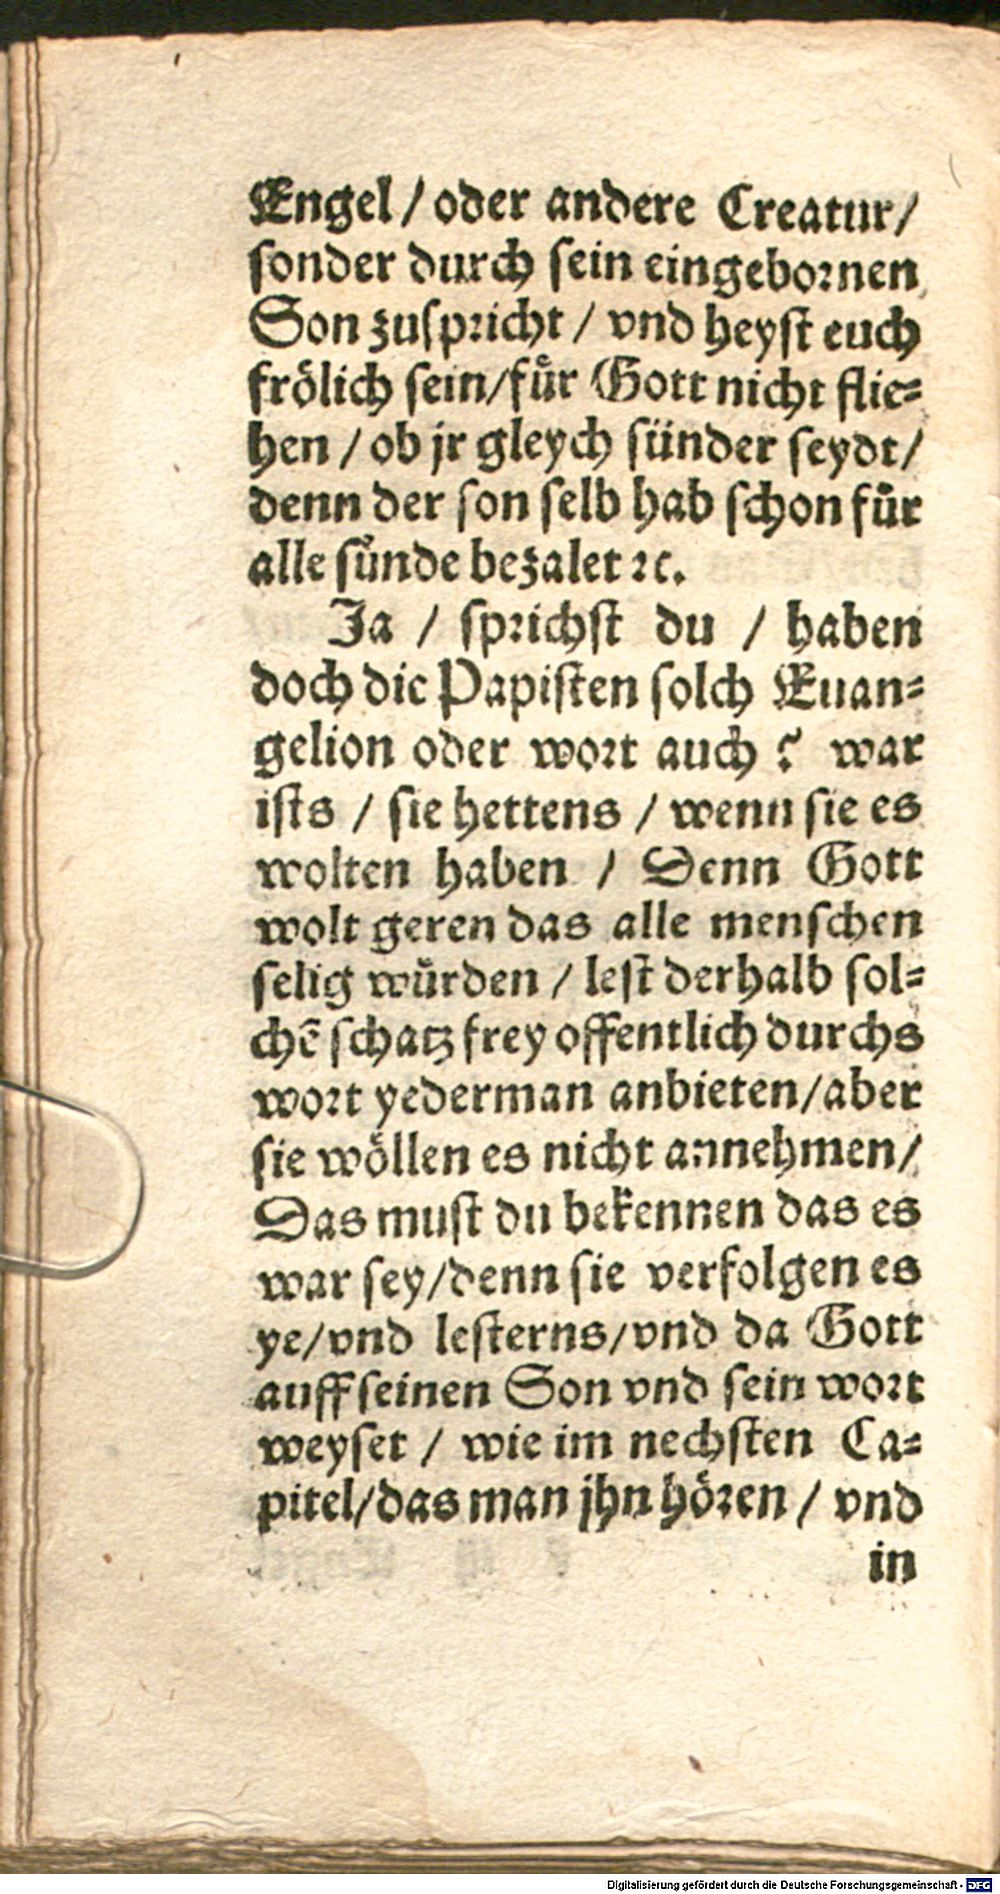 Engel / oder andere Creatur /
ſonder durch ſein eingebornen
Son zuſpricht / vnd heyſt euch
froͤlich ſein / fuͤr Gott nicht flie⸗
hen / ob jr gleych ſünder ſeydt /
denn der ſon ſelb hab ſchon fuͤr
alle ſuͤnde bezalet ꝛc.
Ja / ſprichſt du / haben
doch die Papiſten ſolch Euan⸗
gelion oder wort auch? war
iſts / ſie hettens / wenn ſie es
wolten haben / Denn Gott
wolt geren das alle menſchen
ſelig wuͤrden / leſt derhalb ſol⸗
chẽ ſchatz frey offentlich durchs
wort yederman anbieten / aber
ſie woͤllen es nicht annehmen /
Das muſt du bekennen das es
war ſey / denn ſie verfolgen es
ye / vnd leſterns / vnd da Gott
auff ſeinen Son vnd ſein wort
weyſet / wie im nechſten Ca⸗
pitel / das man jhn hoͤren / vnd
in
Digitalisierung gefördert durch die Deutsche Forschungsgemeinschaft - DFG